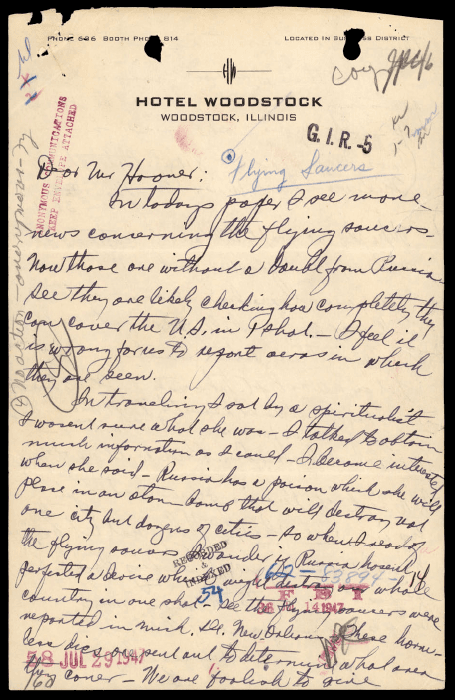 PHONE 636 BOOTH PHONE 614
LOCATED IN BUSINESS DISTRICT
HW
HOTEL WOODSTOCK
WOODSTOCK, ILLINOIS
G.I.R.-5
ANONYMOUS COMMUNICATIONS
KEEP ENVELOPE ATTACHED
No action - anonymous -
Flying Saucers
Dear Mr Hoover:
In todays paper I see more
news concerning the flying saucers -
Now those are without a doubt from Russia
See they are likely checking how completely they
can cover the U.S. in 1 shot. - I feel it
is wrong for us to report areas in which
they are seen.
In traveling I sat by a spiritualist
I wasent sure what she was - I talked to obtain
much information as I could - I became interested
when she said - Russia has a poison which she will
place in an atom bomb that will destroy not
one city but dozens of cities - so when I read of
the flying saucers I wonder if Russia hasent
perfected a device which might destroy a whole
country in one shot - See the flying saucers were
reported in Mich. La. New Orleans - These harm-
less discs are sent out to determine what area
they cover - We are foolish to give
RECORDED
&
INDEXED
54
62-83894-14
F B I
36 JUL 14 1947
58 JUL 29 1947